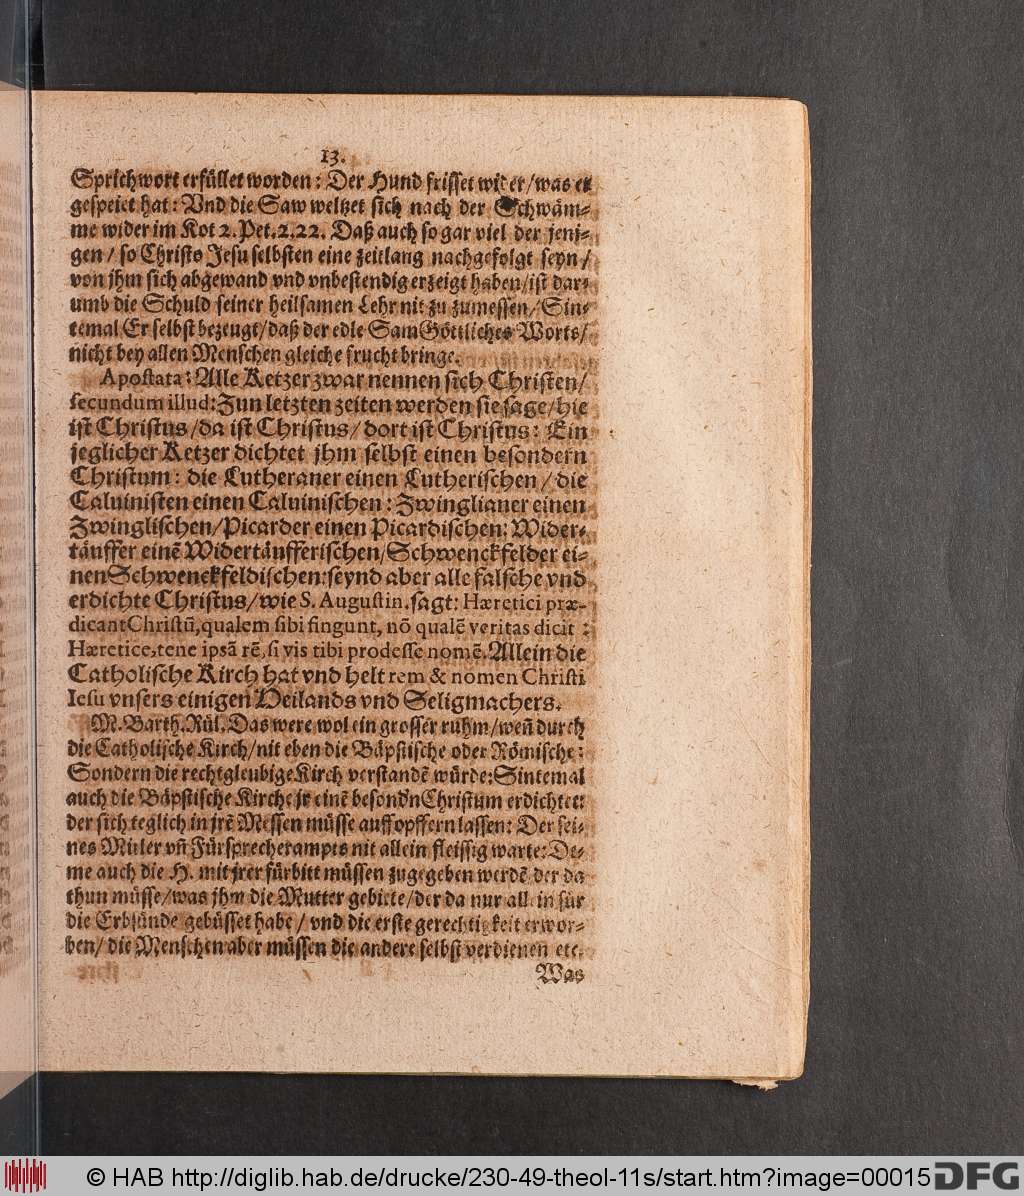 13.
Sprichwort erfüllet worden: Der Hund frisset wider/was er
gespeiet hat: Vnd die Saw weltzet sich nach der Schwäm-
me wider im Kot 2. Pet. 2, 22. Daß auch so gar viel der jeni-
gen / so Christo Jesu selbsten eine zeitlang nachgefolgt seyn /
von jhm sich abgewand vnd vnbestendig erzeigt haben/ist dar-
umb die Schuld seiner heilsamen Lehr nit zu zumessen/Sin-
temal Er selbst bezeugt/daß der edle Sam Göttliches Worts/
nicht bey allen Menschen gleiche frucht bringe.
Apostata: Alle Ketzer zwar nennen sich Christen/
secundum illud: Zun letzten zeiten werden sie sagē/hie
ist Christus/da ist Christus/dort ist Christus: Ein
jeglicher Ketzer dichtet jhm selbst einen besondern
Christum: die Lutheraner einen Lutherischen / die
Caluinisten einen Caluinischen: Zwinglianer einen
Zwinglischen/Picarder einen Picardischen: Wider-
täuffer einē Widertäufferischen/Schwenckfelder ei-
nen Schwenckfeldischen: seynd aber alle falsche vnd
erdichte Christus/wie S. Augustin. sagt: Hæretici præ-
dicant Christū, qualem sibi fingunt, nō qualē veritas dicit:
Hæretice, tene ipsā rē, si vis tibi prodesse nomē. Allein die
Catholische Kirch hat vnd helt rem & nomen Christi
Iesu vnsers einigen Heilands vnd Seligmachers.
M. Barth. Rül. Das were wol ein grosser ruhm/weñ durch
die Catholische Kirch/nit eben die Bäpstische oder Römische:
Sondern die rechtgleubige Kirch verstandē würde: Sintemal
auch die Bäpstische Kirche jr einē besondn Christum erdichtet:
der sich teglich in jrē Messen müsse auffopffern lassen: Der sei-
nes Mitler vñ Fürsprecherampts nit allein fleissig warte: De-
me auch die H. mit jrer fürbitt müssen zugegeben werdē der da
thun müsse/was jhm die Mutter gebiete/der da nur allein für
die Erbsünde gebüsset habe / vnd die erste gerechtigkeit erwor-
ben/ die Menschen aber müssen die andere selbst verdienen etc.
Was
© HAB http://diglib.hab.de/drucke/230-49-theol-11s/start.htm?image=00015
DFG